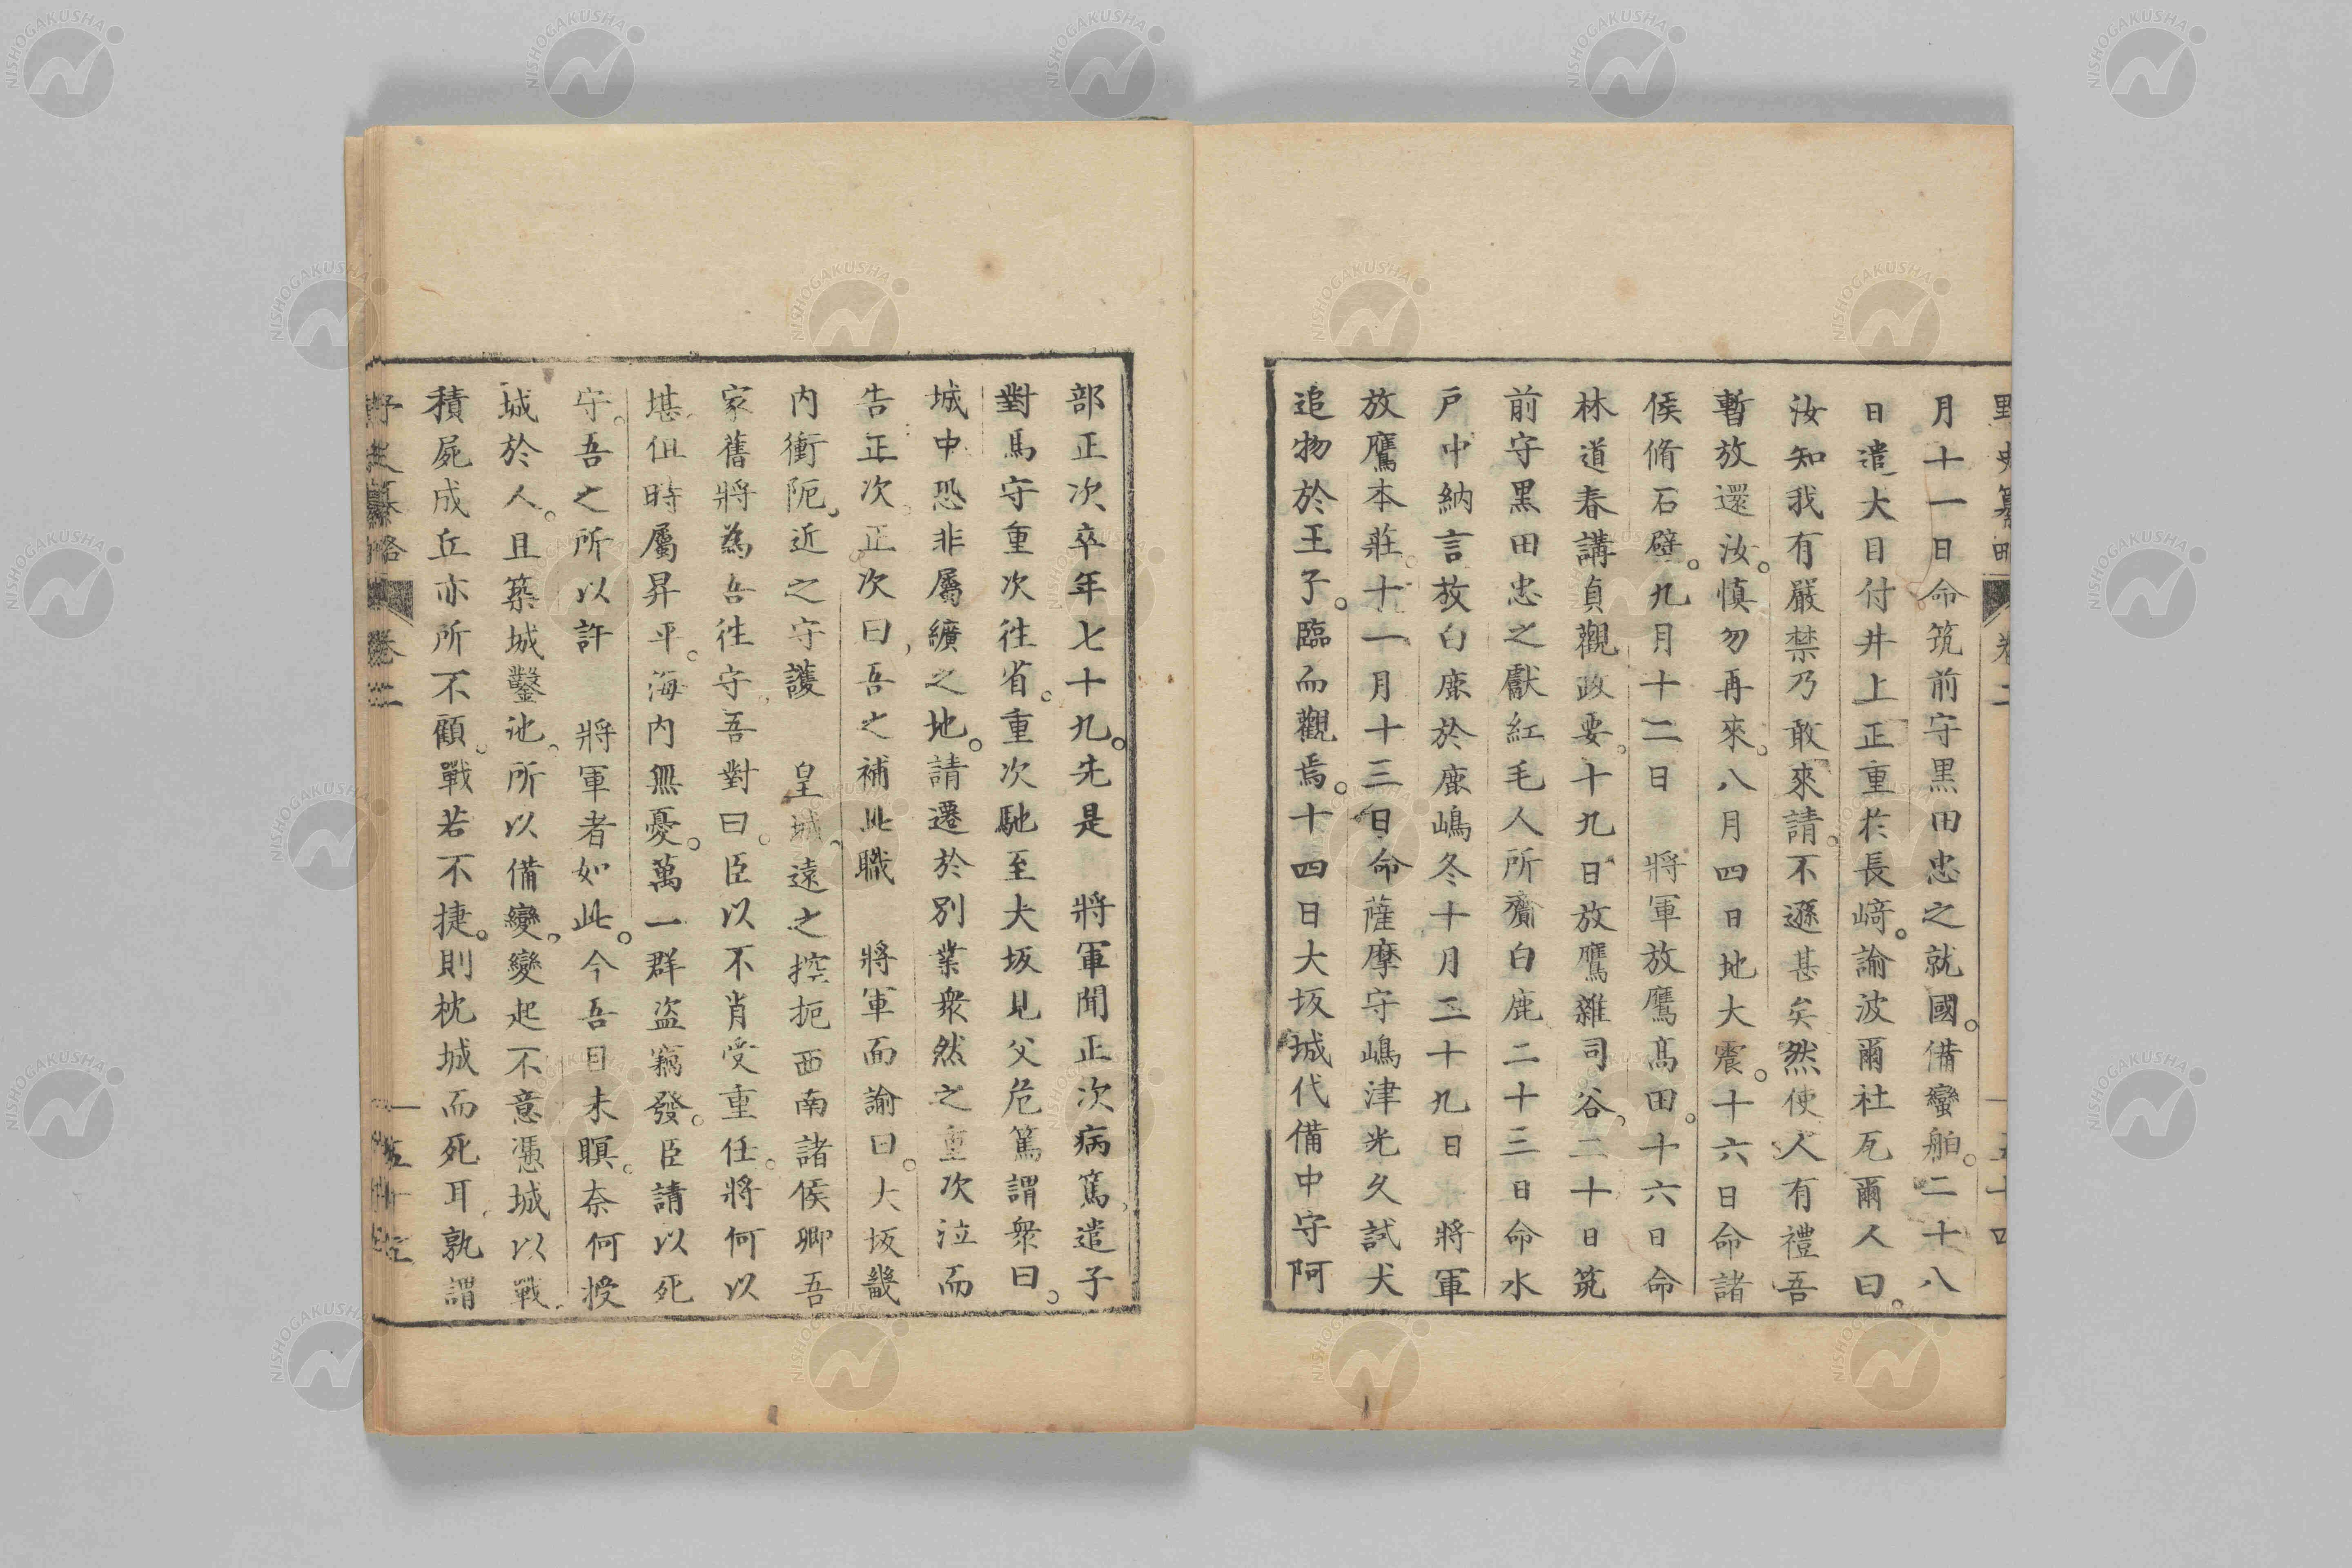 月十一日命筑前守黒田忠之就國。備蠻舶。二十八
日遣大目付井上正重於長﨑。諭波爾社瓦爾人曰。
汝知我有嚴禁乃敢來請。不遜甚矣然使人有禮吾
暫放還汝。慎勿再來。八月四日地大震。十六日命諸
侯脩石壁。九月十二日 將軍放鷹髙田。十六日命
林道春講貞觀政要。十九日放鷹雜司谷。二十日筑
前守黒田忠之獻紅毛人所齎白鹿二十三日命水
戸中納言放白鹿於鹿嶋冬十月二十九日 將軍
放鷹本莊。十一月十三日命薩摩守嶋津光久試犬
追物於王子。臨而觀焉。十四日大坂城代備中守阿
部正次卒年七十九。先是 將軍聞正次病篤、遣子
對馬守重次徃省。重次馳至大坂見父危篤謂衆曰。
城中恐非屬纊之地。請遷於別業衆然之重次泣而
告正次。正次曰、吾之補此職 將軍面諭曰。大坂畿
内衝阨、近之守護 皇城、遠之控扼西南諸侯卿吾
家舊將為吾徃守、吾對曰。臣以不肖受重任。將何以
堪。但時屬昇平。海内無憂。萬一群盗竊發。臣請以死
守。吾之所以許 將軍者如此。今吾目未瞑。奈何授
城於人。且築城鑿池。所以備變。變起不意憑城以戰。
積屍成丘亦所不顧。戰若不捷。則枕城而死耳。孰謂
野史纂略 卷二